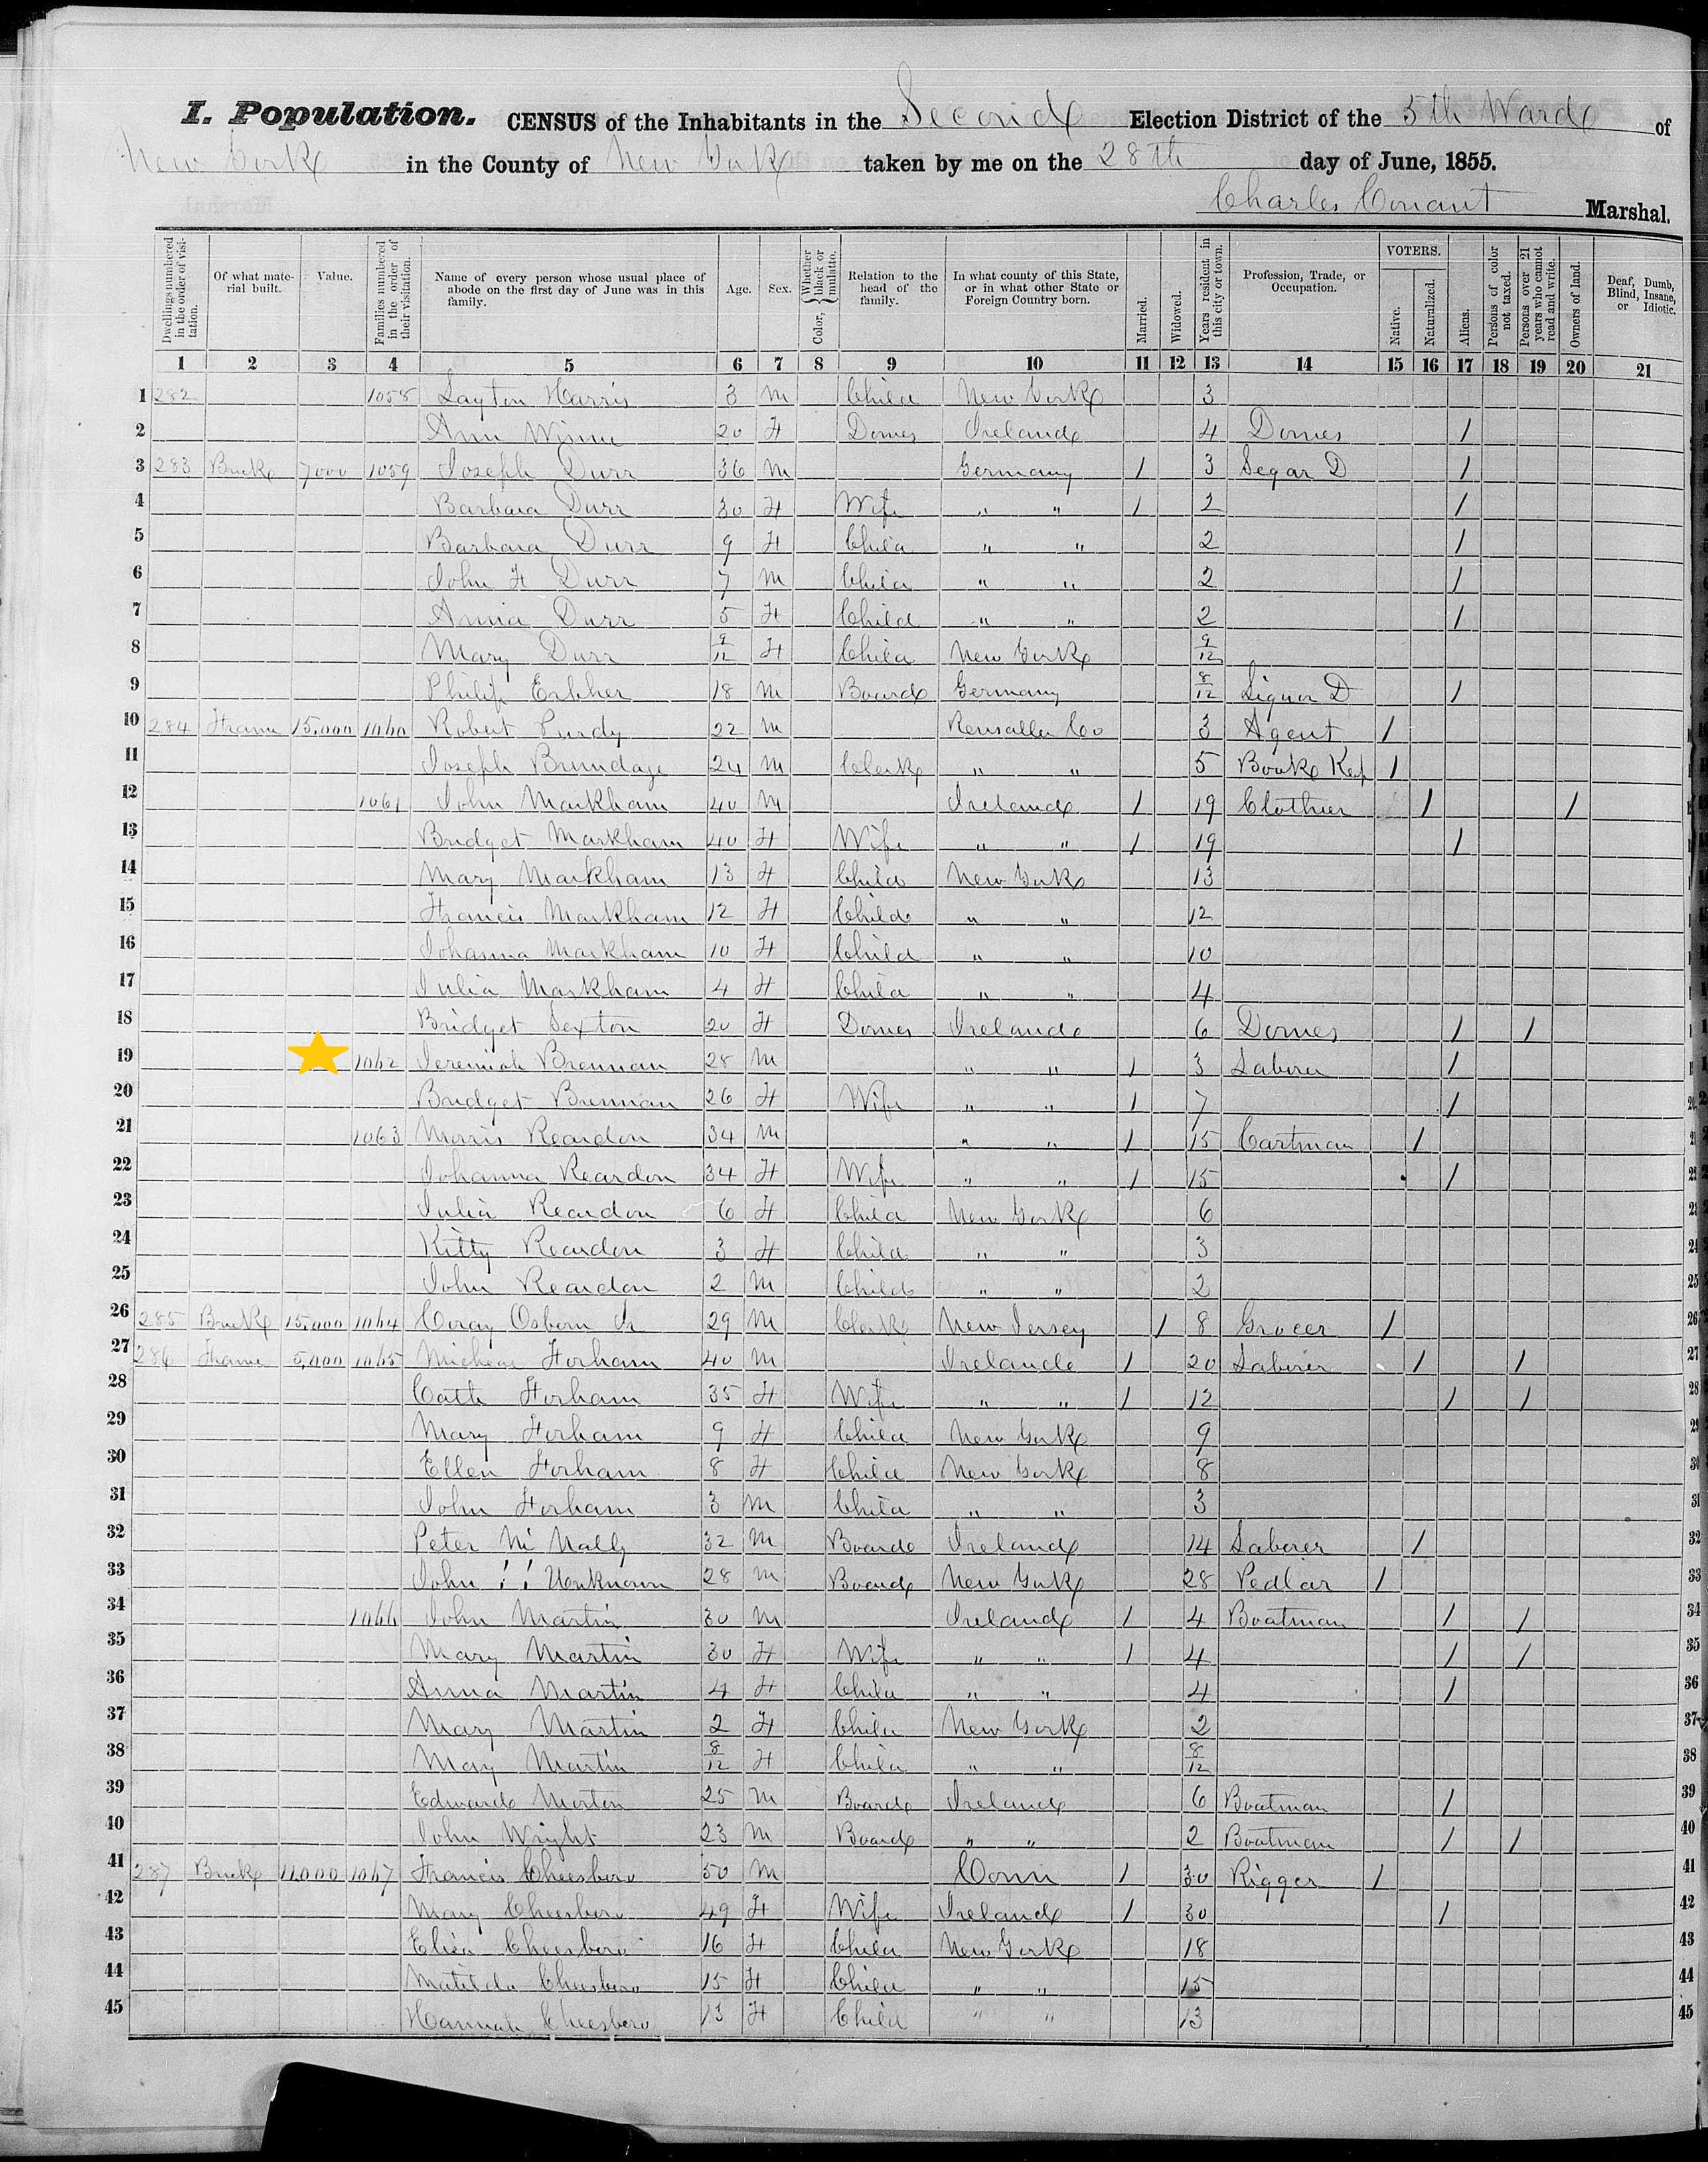 I. Population. CENSUS of the Inhabitants in the Second Election District of the 5th Ward of
New York in the County of New York taken by me on the 28th day of June, 1855.
Charles Conant Marshal.
Dwellings numbered in the order of visitation. Of what material built. Value. Families numbered in the order of their visitation. Name of every person whose usual place of abode on the first day of June was in this family. Age. Sex. Color, Whether black or mulatto. Relation to the head of the family. In what county of this State, or in what other State or Foreign Country born. Married. Widowed. Years resident in this city or town. Profession, Trade, or Occupation. VOTERS. Native. Naturalized. Aliens. Persons of color not taxed. Persons over 21 years who cannot read and write. Owners of land. Deaf, Dumb, Blind, Insane, or Idiotic.
1 2 3 4 5 6 7 8 9 10 11 12 13 14 15 16 17 18 19 20 21
1 282 1058 Layton Harris 3 M Child New York 3
2 Ann 20 F Domes Ireland 4 Domes /
3 283 Brick 7000 1059 Joseph Durr 36 M Germany / 3 Segar D /
4 Barbara Durr 30 F Wife " " / 2 /
5 Barbara Durr 9 F Child " " 2 /
6 John F Durr 7 M Child " " 2 /
7 Annia Durr 5 F Child " " 2 /
8 Mary Durr 9/12 F Child New York 9/12
9 Philip 18 M Board Germany 8/12 Liquor D /
10 284 Frame 15,000 1060 Robert Purdy 22 M Rensaller Co 3 Agent /
11 Joseph Brundage 24 M Clerk " " 5 Book Kep /
12 1061 John Markham 40 M Ireland / 19 Clothier / /
13 Bridget Markham 40 F Wife " " / 19 /
14 Mary Markham 13 F Child New York 13
15 Francis Markham 12 F Child " " 12
16 Johanna Markham 10 F Child " " 10
17 Julia Markham 4 F Child " " 4
18 Bridget Sexton 20 F Domes Ireland 6 Domes / /
19 1062 Jeremiah Brennan 28 M " " / 3 Laborer /
20 Bridget Brennan 26 F Wife " " / 7 /
21 1063 Morris Reardon 34 M " " / 15 Cartman /
22 Johanna Reardon 34 F Wife " " / 15 /
23 Julia Reardon 6 F Child New York 6
24 Kitty Reardon 3 F Child " " 3
25 John Reardon 2 M Child " " 2
26 285 Brick 15,000 1064 Osborn Jr 29 M Clerk New Jersey / 8 Grocer /
27 286 Frame 5,000 1065 Micheal Forham 40 M Ireland / 20 Laborer / /
28 Cath Forham 35 F Wife " " / 12 / /
29 Mary Forham 9 F Child New York 9
30 Ellen Forham 8 F Child New York 8
31 John Forham 3 M Child " " 3
32 Peter Mc Nally 32 M Board Ireland 14 Laborer /
33 John ! ! Unknown 28 M Board New York 28 Pedlar /
34 1066 John Martin 30 M Ireland / 4 Boatman / /
35 Mary Martin 30 F Wife " " / 4 / /
36 Anna Martin 4 F Child " " 4 /
37 Mary Martin 2 F Child New York 2
38 May Martin 8/12 F Child " " 8/12
39 Edward Morton 25 M Board Ireland 6 Boatman /
40 John Wright 23 M Board " " 2 Boatman / /
41 287 Brick 11,000 1067 Francis Cheesboro 50 M Conn / 30 Rigger /
42 Mary Cheesboro 49 F Wife Ireland / 30 /
43 Eliza Cheesboro 16 F Child New York 18
44 Matilda Cheesboro 15 F Child " " 15
45 Hannah Cheesboro 13 F Child " " 13